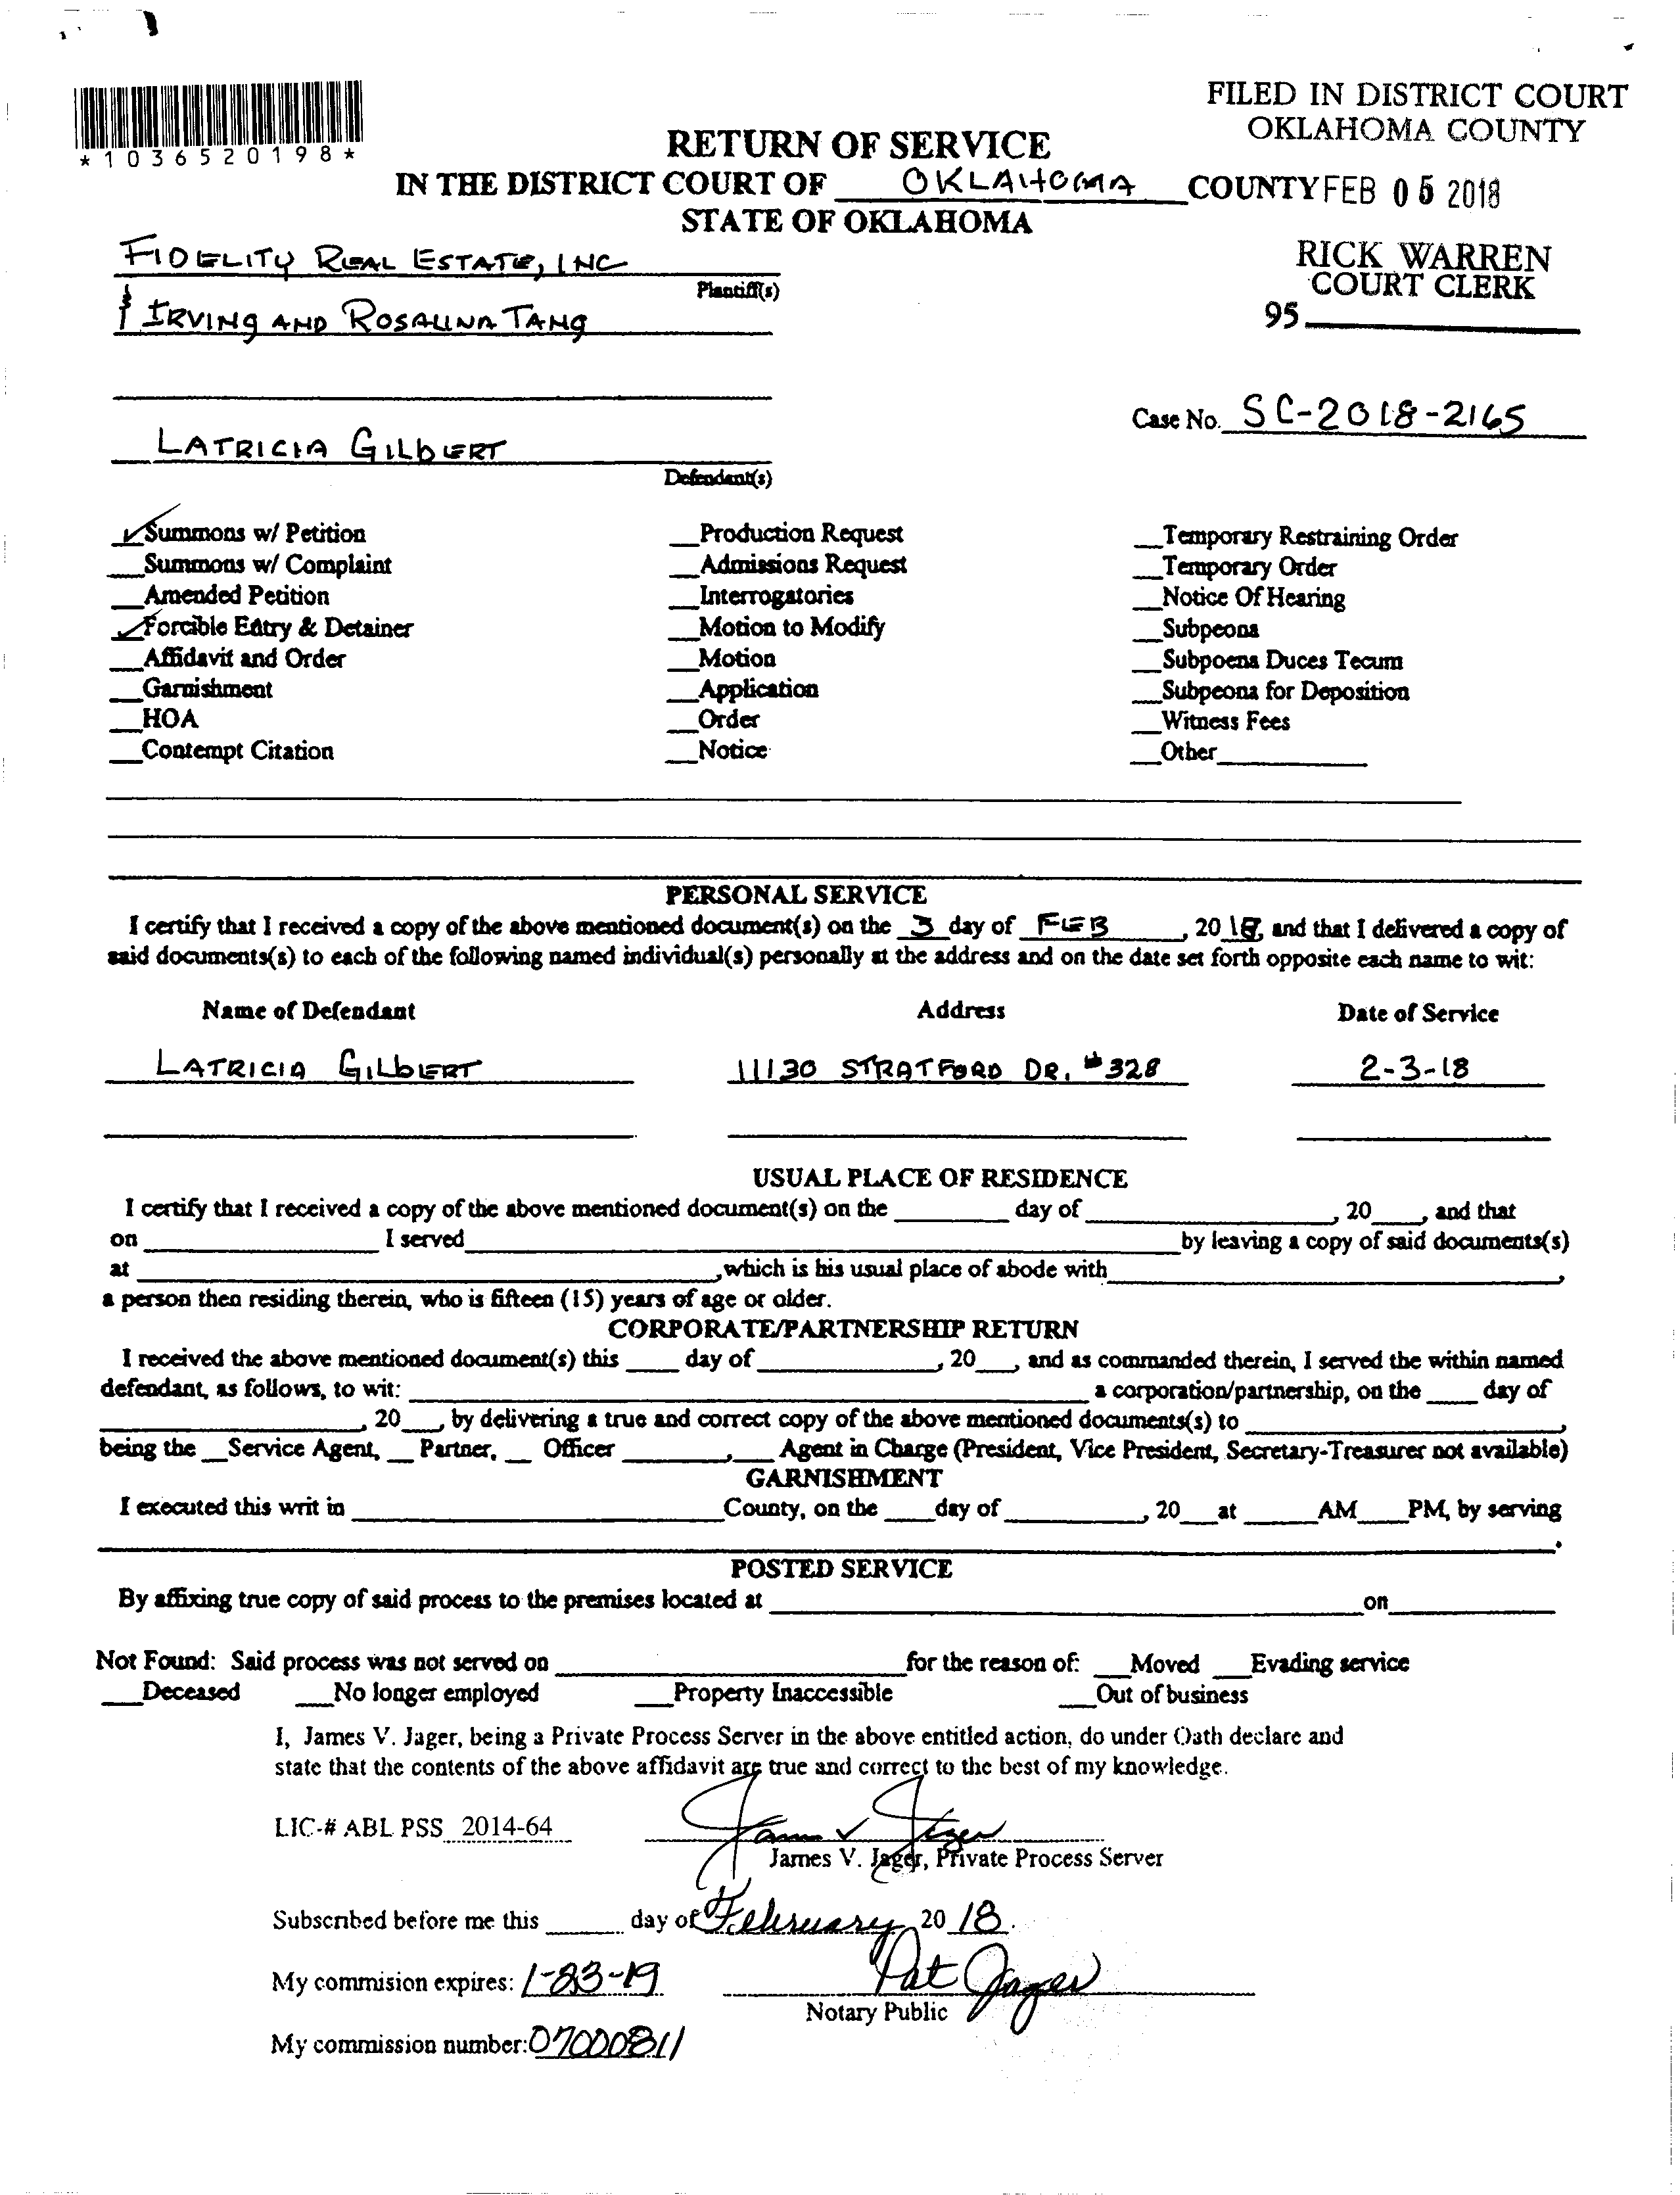 FILED IN DISTRICT COURT
OKLAHOMA COUNTY
*1036520198*
RETURN OF SERVICE
IN THE DISTRICT COURT OF OKLAHOMA COUNTY FEB 05 2018
STATE OF OKLAHOMA
FIDELITY REAL ESTATE, INC
RICK WARREN
COURT CLERK
Plantiff(s)
& IRVING AND ROSALINA TANG
95
Case No. SC-2018-2165
LATRICIA GILBERT
Defendant(s)
✓Summons w/ Petition __Production Request __Temporary Restraining Order
__Summons w/ Complaint __Admissions Request __Temporary Order
__Amended Petition __Interrogatories __Notice Of Hearing
✓Forcible Entry & Detainer __Motion to Modify __Subpeona
__Affidavit and Order __Motion __Subpoena Duces Tecum
__Garnishment __Application __Subpeona for Deposition
__HOA __Order __Witness Fees
__Contempt Citation __Notice __Other
PERSONAL SERVICE
I certify that I received a copy of the above mentioned document(s) on the 3 day of FEB, 20 18, and that I delivered a copy of
said documents(s) to each of the following named individual(s) personally at the address and on the date set forth opposite each name to wit:
Name of Defendant Address Date of Service
LATRICIA GILBERT 11130 STRATFORD DR. #328 2-3-18
USUAL PLACE OF RESIDENCE
I certify that I received a copy of the above mentioned document(s) on the ____ day of ____, 20__, and that
on ____ I served ____ by leaving a copy of said documents(s)
at ____, which is his usual place of abode with ____,
a person then residing therein, who is fifteen (15) years of age or older.
CORPORATE/PARTNERSHIP RETURN
I received the above mentioned document(s) this ____ day of ____, 20__, and as commanded therein, I served the within named
defendant, as follows, to wit: ____ a corporation/partnership, on the ____ day of
____, 20__, by delivering a true and correct copy of the above mentioned documents(s) to ____,
being the __Service Agent, __ Partner, __ Officer ____,__ Agent in Charge (President, Vice President, Secretary-Treasurer not available)
GARNISHMENT
I executed this writ in ____ County, on the ____ day of ____, 20__ at ____ AM ____ PM, by serving
____.
POSTED SERVICE
By affixing true copy of said process to the premises located at ____ on ____
Not Found: Said process was not served on ____ for the reason of: __Moved __Evading service
__Deceased __No longer employed __Property Inaccessible __Out of business
I, James V. Jager, being a Private Process Server in the above entitled action, do under Oath declare and
state that the contents of the above affidavit are true and correct to the best of my knowledge.
LIC-# ABL PSS 2014-64 James V Jager
James V. Jager, Private Process Server
Subscribed before me this ____ day of February 20 18.
My commision expires: 1-23-19 Pat Jager
Notary Public
My commission number: 07000811